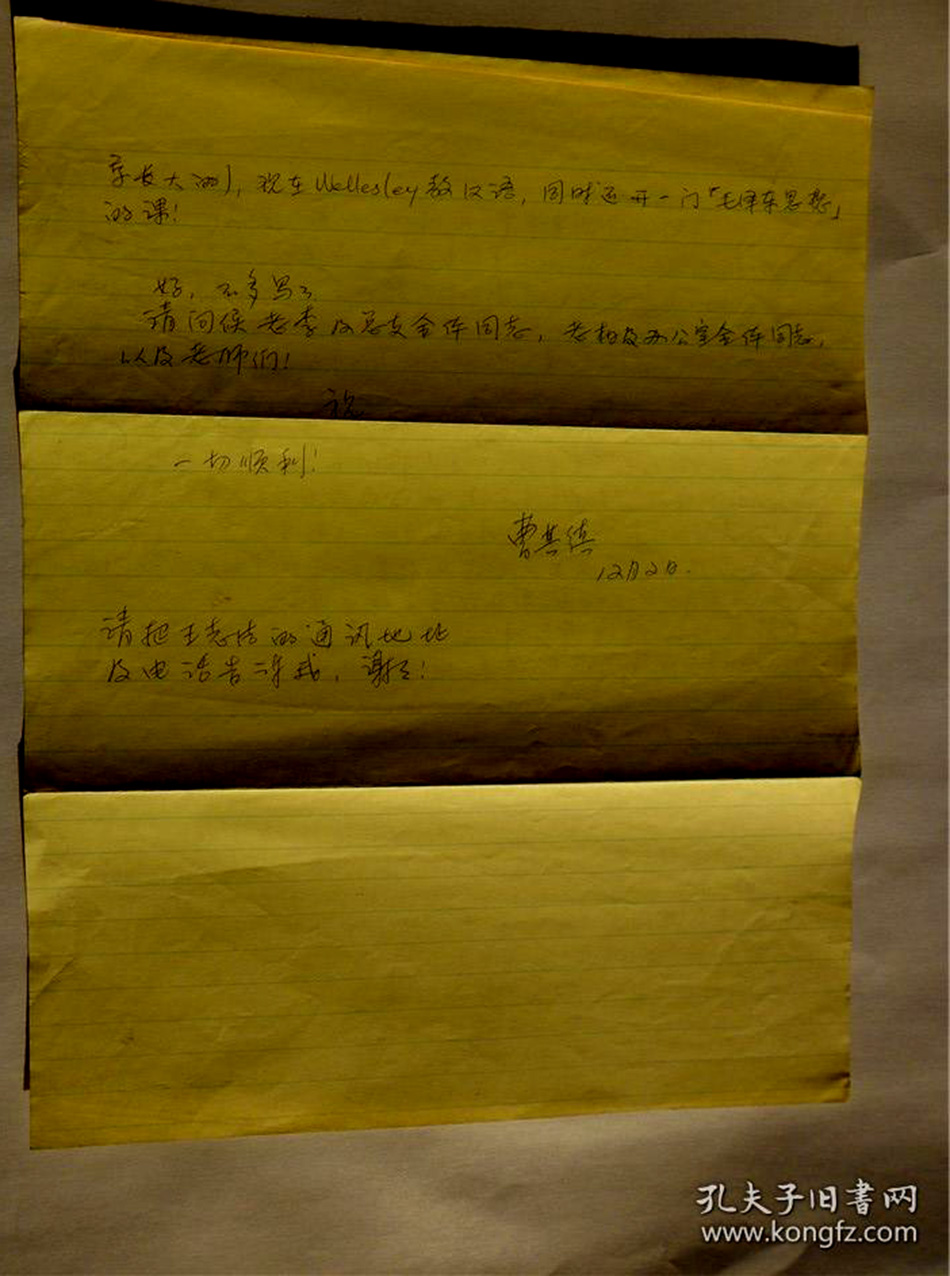 长大的），现在Wellesley教汉语，同时还开一门「毛泽东思想」
的课！
好，不多写了
请问候老李及总支全体同志，老柏及办公室全体同志，
以及老师们！
祝
一切顺利！
曹其缜
12月2日.
请把王志洁的通讯地址
及电话告诉我，谢谢！
孔夫子旧书网
www.kongfz.com